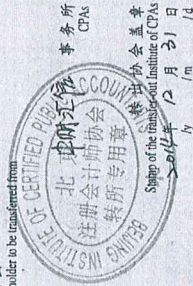 holder to be transferred from
事务所
CPAs
BEIJING INSTITUTE OF CERTIFIED PUBLIC ACCOUN
北
注册会计师协会
转所专用章
转出协会盖章
Stamp of the transfer-out Institute of CPAs
2014年 12月 31日
/y /m /d